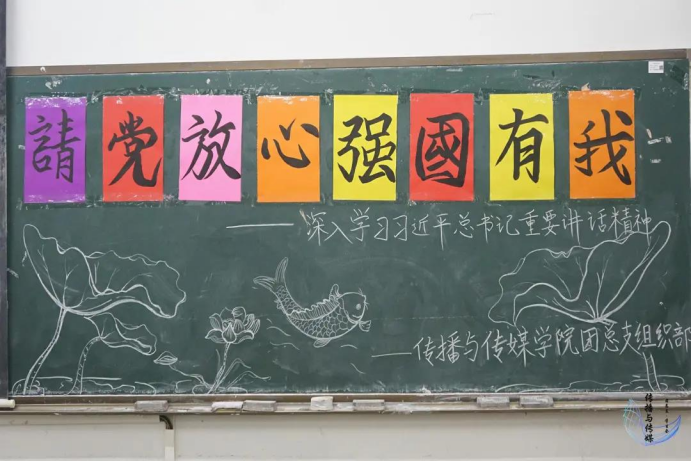 請党放心强國有我
——深入学习习近平总书记重要讲话精神
——传播与传媒学院团总支组织部
传播与传媒